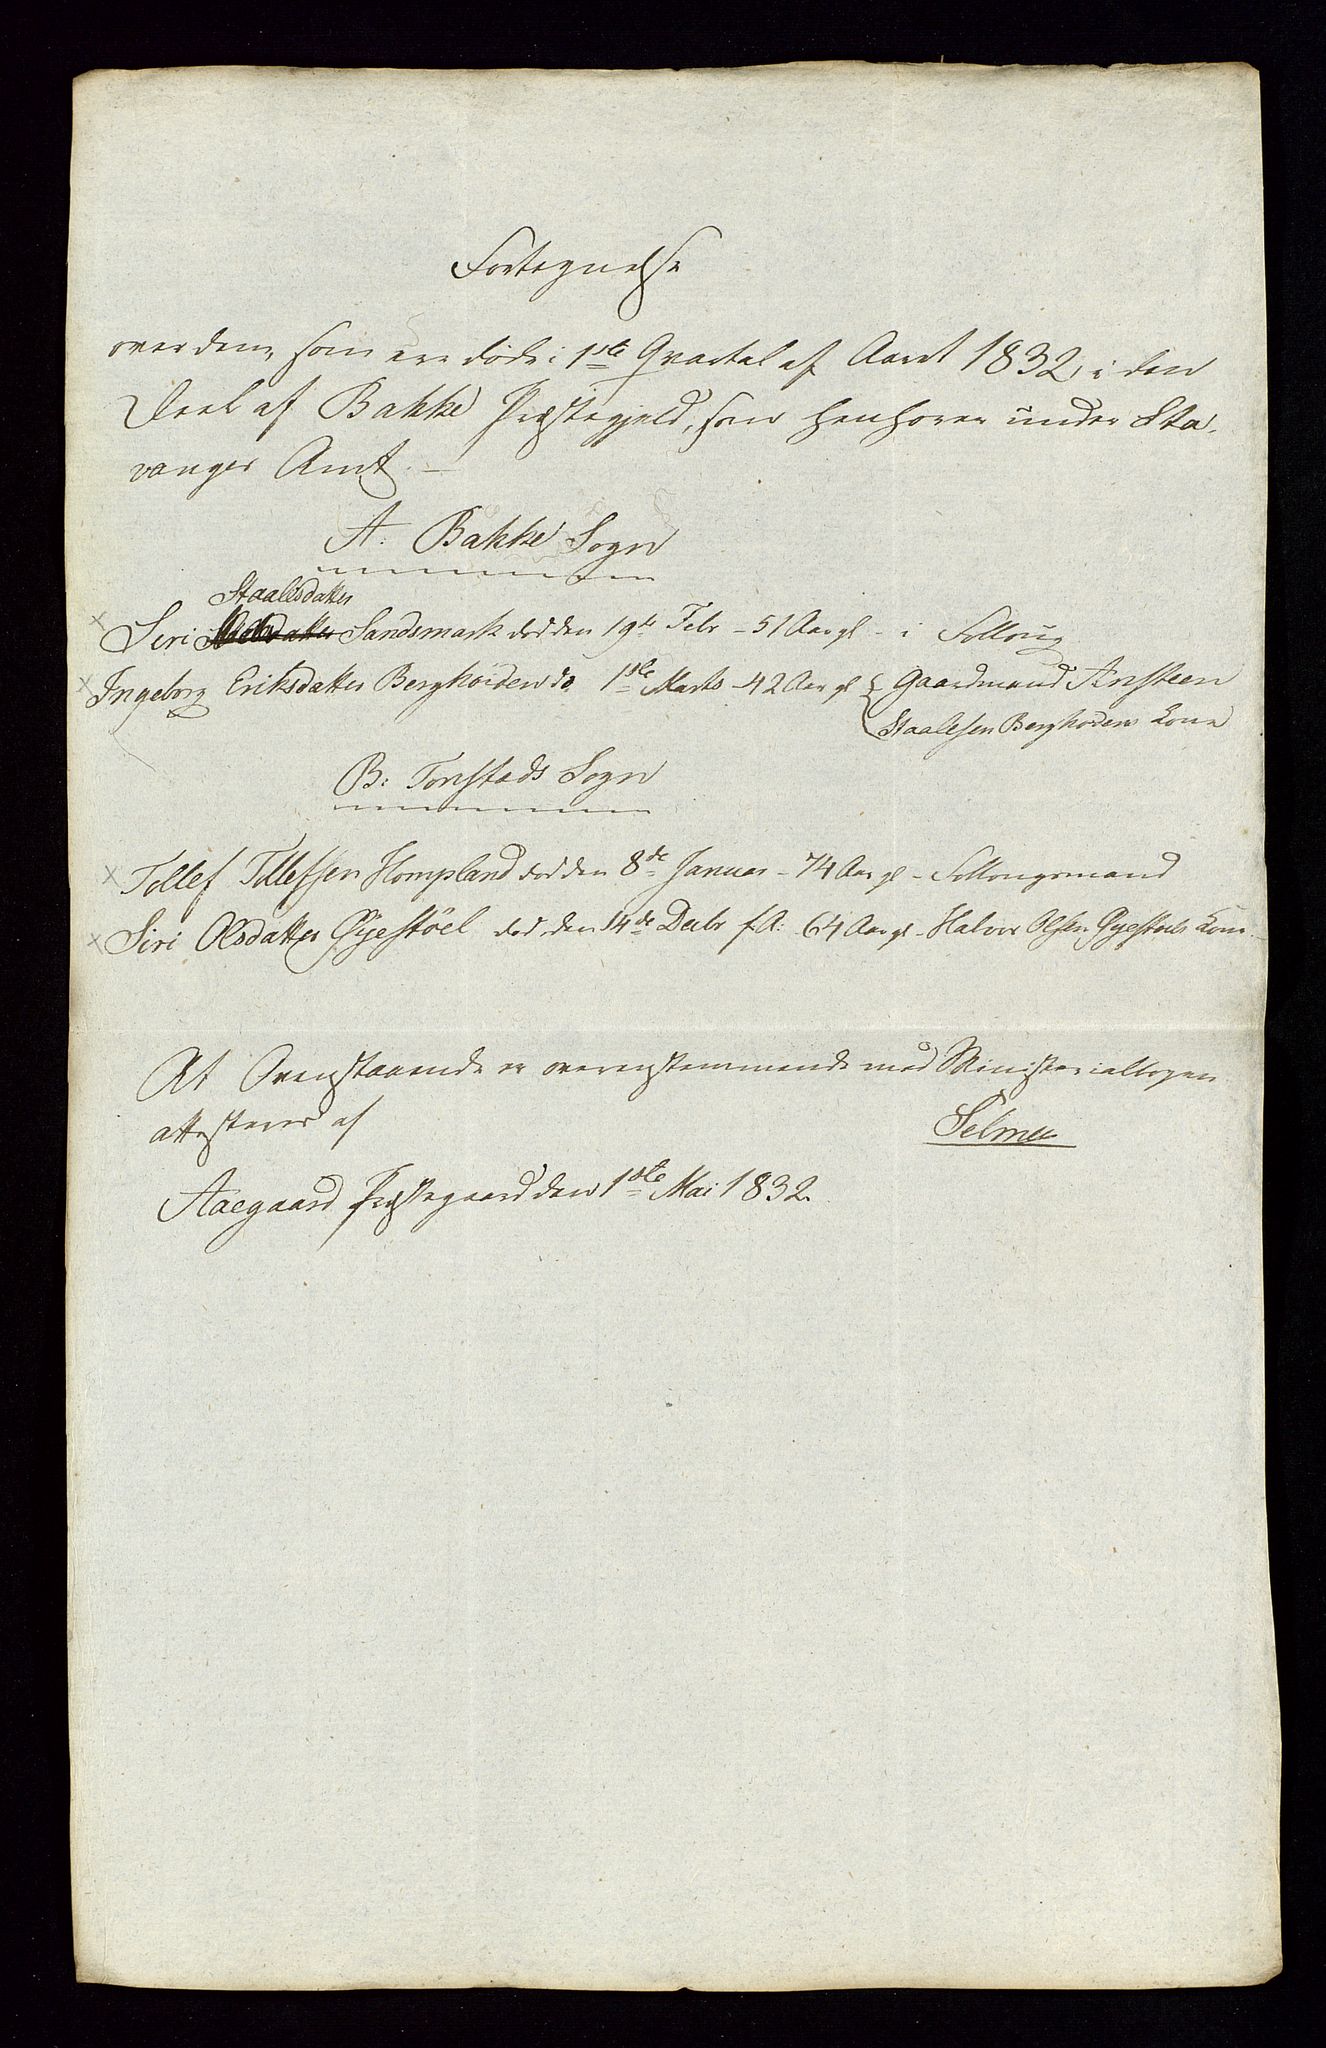 Fortegnelse
over dem, som ere døde i 1ste Qvartal af Aaret 1832, i den
Deel af Bakke Præstegjeld, som henhører under Sta-
vanger Amt. —
A. Bakke Sogn
Staalesdatter
Siri Sandsmark død den 19de Febr – 51 Aar gl – i Folloug
Ingeborg Eriksdatter Berghöiden do 1ste Marts – 42 Aar gl { Gaardmand Ansteen
Staalesen Berghodens Kone
B: Tonstads Sogn
Tollef Tollefsen Hompland død den 8de Januar – 74 Aar gl – Follougsmand
Siri Olsdatter Øyestöel død den 14de Decbr f. A: 64 Aar gl – Halvor Olsen Øyestöels Kone –
At Ovenstaaende er overensstemmende med Ministerialbogen
attesteres af
Selmer
Aaegaard Præstegaard den 1ste Mai 1832.